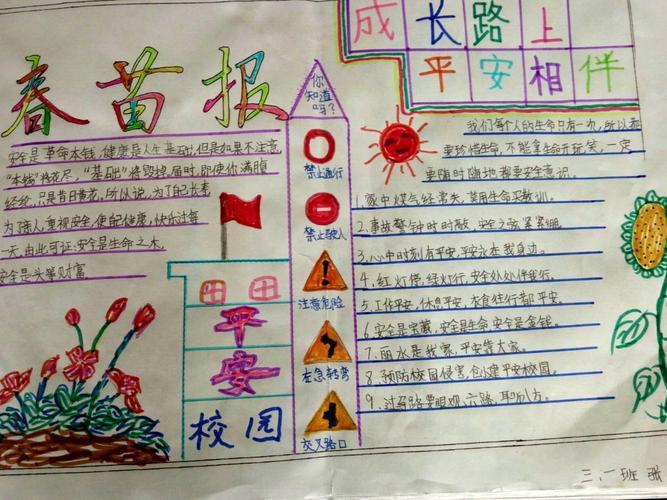 春苗报
成长路上
平安相伴
安全是革命本钱,健康是人生基础,但是如果不注意,
"本钱"将殆尽,"基础"将毁坏。届时,即使你满腹
经纶,只是昔日黄花,所以说,为了Ta
为了亲人重视安全,使配健康,快乐过每
一天,由此可证:安全是生命之本,
安全是头等财富
你
知道
吗?
禁止通行
禁止驶入
注意危险
左急转弯
交叉路口
平
安
校园
我们每个人的生命只有一次,所以
要珍惜生命,不能拿生命开玩笑,一定
要随时随地拥有安全意识。
1.家中煤气经常关,莫用生命买教训。
2.事故警钟时时敲,安全之弦紧紧绷。
3.心中时刻有平安,平安永在我身边。
4.红灯停,绿灯行,安全处处伴我行。
5.工作平安,休息平安,衣食住行都平安。
6.安全是宝藏,安全是生命,安全是金钱。
7.丽水是我家,平安靠大家。
8.预防校园侵害,创建平安校园。
9.过马路要眼观六路,耳听八方。
三.一班 张